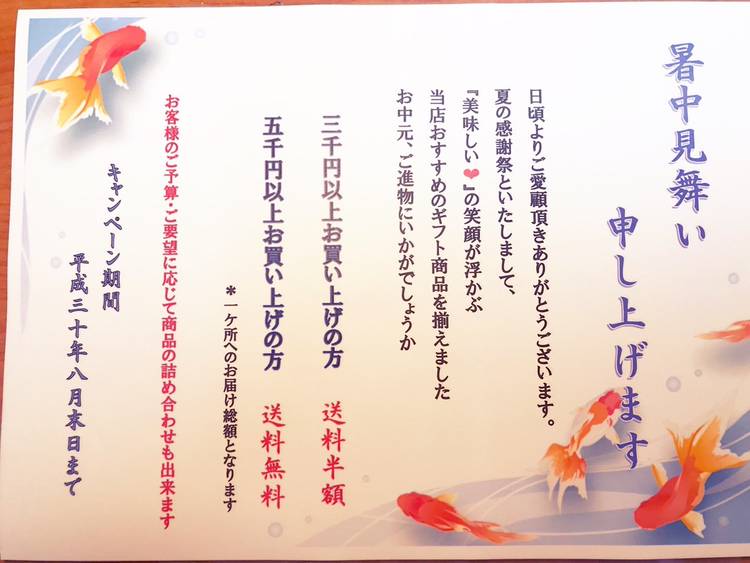 暑中見舞い
申し上げます
日頃よりご愛顧頂きありがとうございます。
夏の感謝祭といたしまして、
『美味しい❤』の笑顔が浮かぶ
当店おすすめのギフト商品を揃えました
お中元、ご進物にいかがでしょうか
三千円以上お買い上げの方 送料半額
五千円以上お買い上げの方 送料無料
*一ケ所へのお届け総額となります
お客様のご予算・ご要望に応じて商品の詰め合わせも出来ます
キャンペーン期間
平成三十年八月末日まで